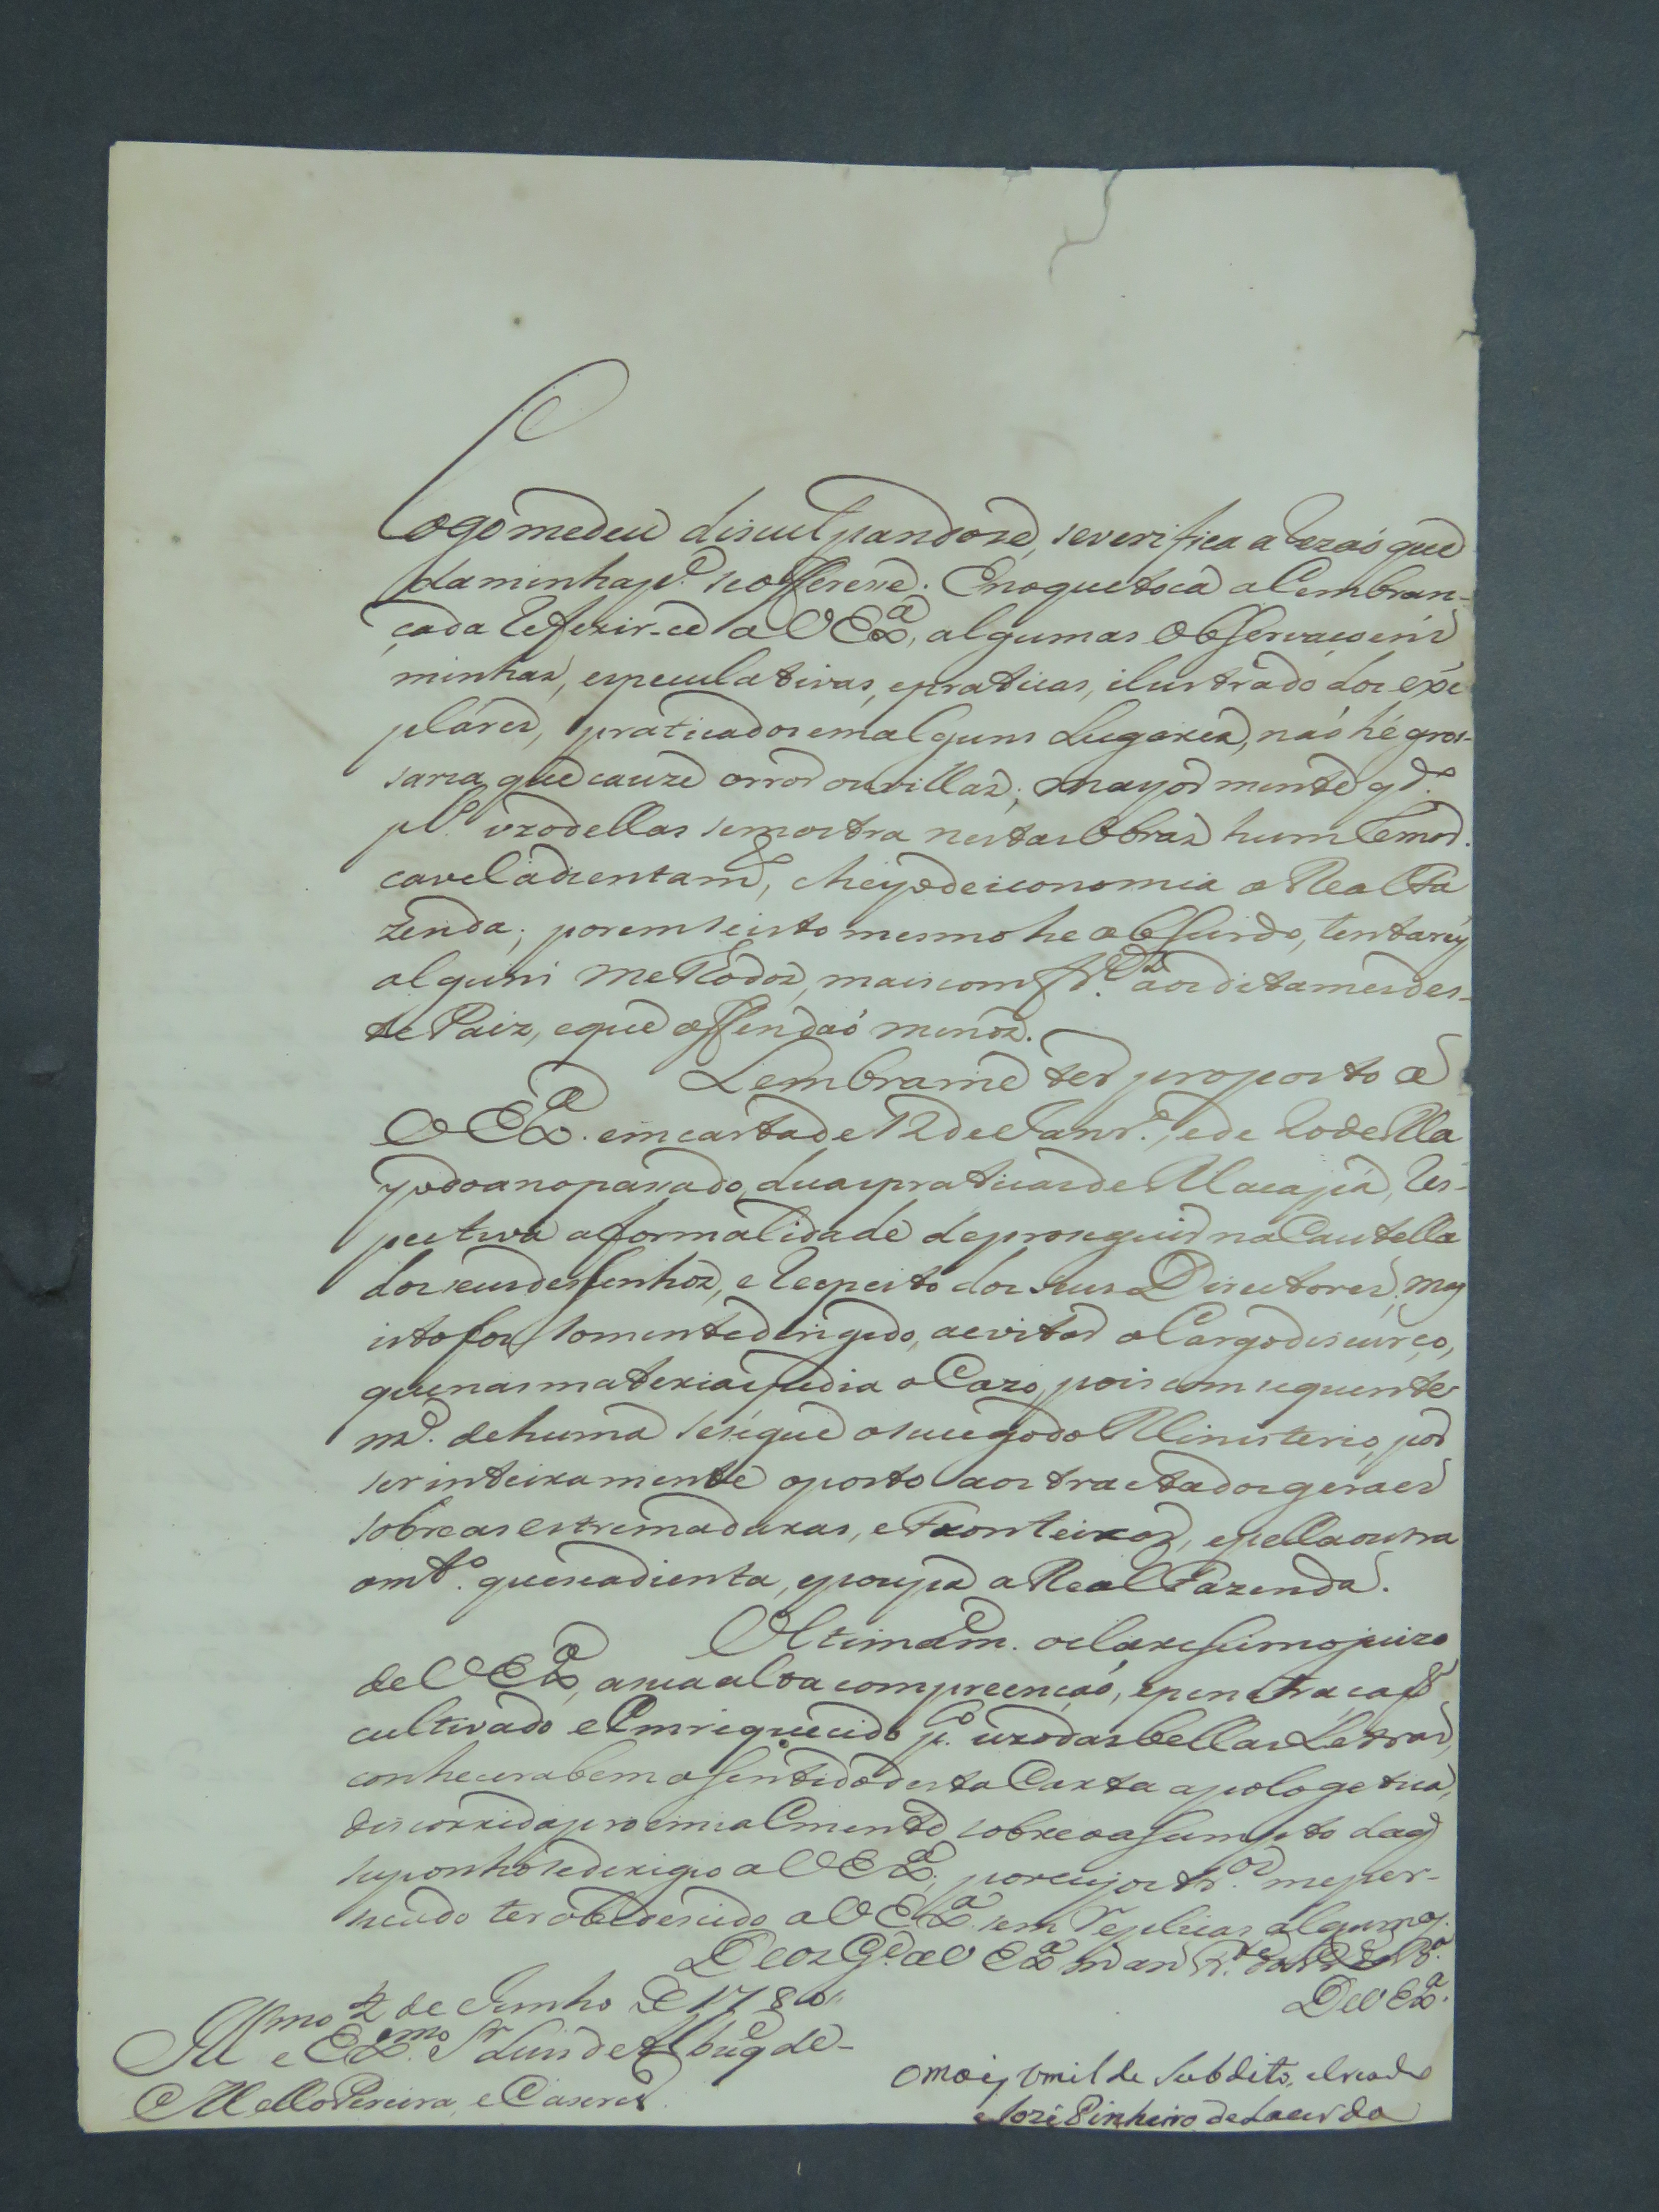 Logo medeu disculpandose, severifica a Rezaó que
daminhap.e seofferese. Enoquetoca a Lembran-
çada Referir-ce a V Ex.a, algumas Observaçoens
minhas, especulativas, epraticas, ilustrado dos exẽ
plares, praticados emalguns Lugares, naó hé gros-
saria que cauze orror ouvillas; mayor mente q.do
pl.o uzodellas semostra nestas Obras hum Remar
cavel adientam.to, cheyo de iconomia a Real Fa
zenda; porem se isto mesmo he absurdo, tentarey
alguns Methodos, mais comf aos ditames des-
te Paiz, eque offendaó menos.
Lembrame ter proposto a
V Ex.a em carta de 12 de Janr.o, e de 20 de Ma
yo do ano pasado, duas praticas de Macapá, Res-
pectiva a formalidade de proseguir na Cautella
dos seus desenhos, e Respeito dos seus Directores; mas
isto foi somente dirigido, a evitar o Largo discurço,
que nas materias pedia o Cazo, pois com seguinte
m.e de huma se sigue o sucego do Ministerio, por
ser inteiramente oposto aos tractados geraes
sobre as estremaduras, e Fronteiras, e pella outra
o m.to que se adienta, e poupa a Real Fazenda.
Oltimam.e o claresimo juizo
de V Ex.a, a sua alta compreençaó, e penetraçaó
cultivado e Emriquecido p.lo uzo das bellas Letras,
conhecera bem o sentido desta Carta apologetica,
discorrida proemialmente sobre o asumpto da q̃
suponho se derigio a V Ex.a; por cujos me per-
suado ter obedesido a V Ex.a sem Replicas algumas.
Deos G.e a V Ex.a
De V Ex.a
2 de Junho de 1780
Ill.mo e Ex.mo S.r Luis de Albuq.e de
Mello Pereira, e Caseres
O mais Umilde Subdito, e Creado
Joze Pinheiro de Lacerda